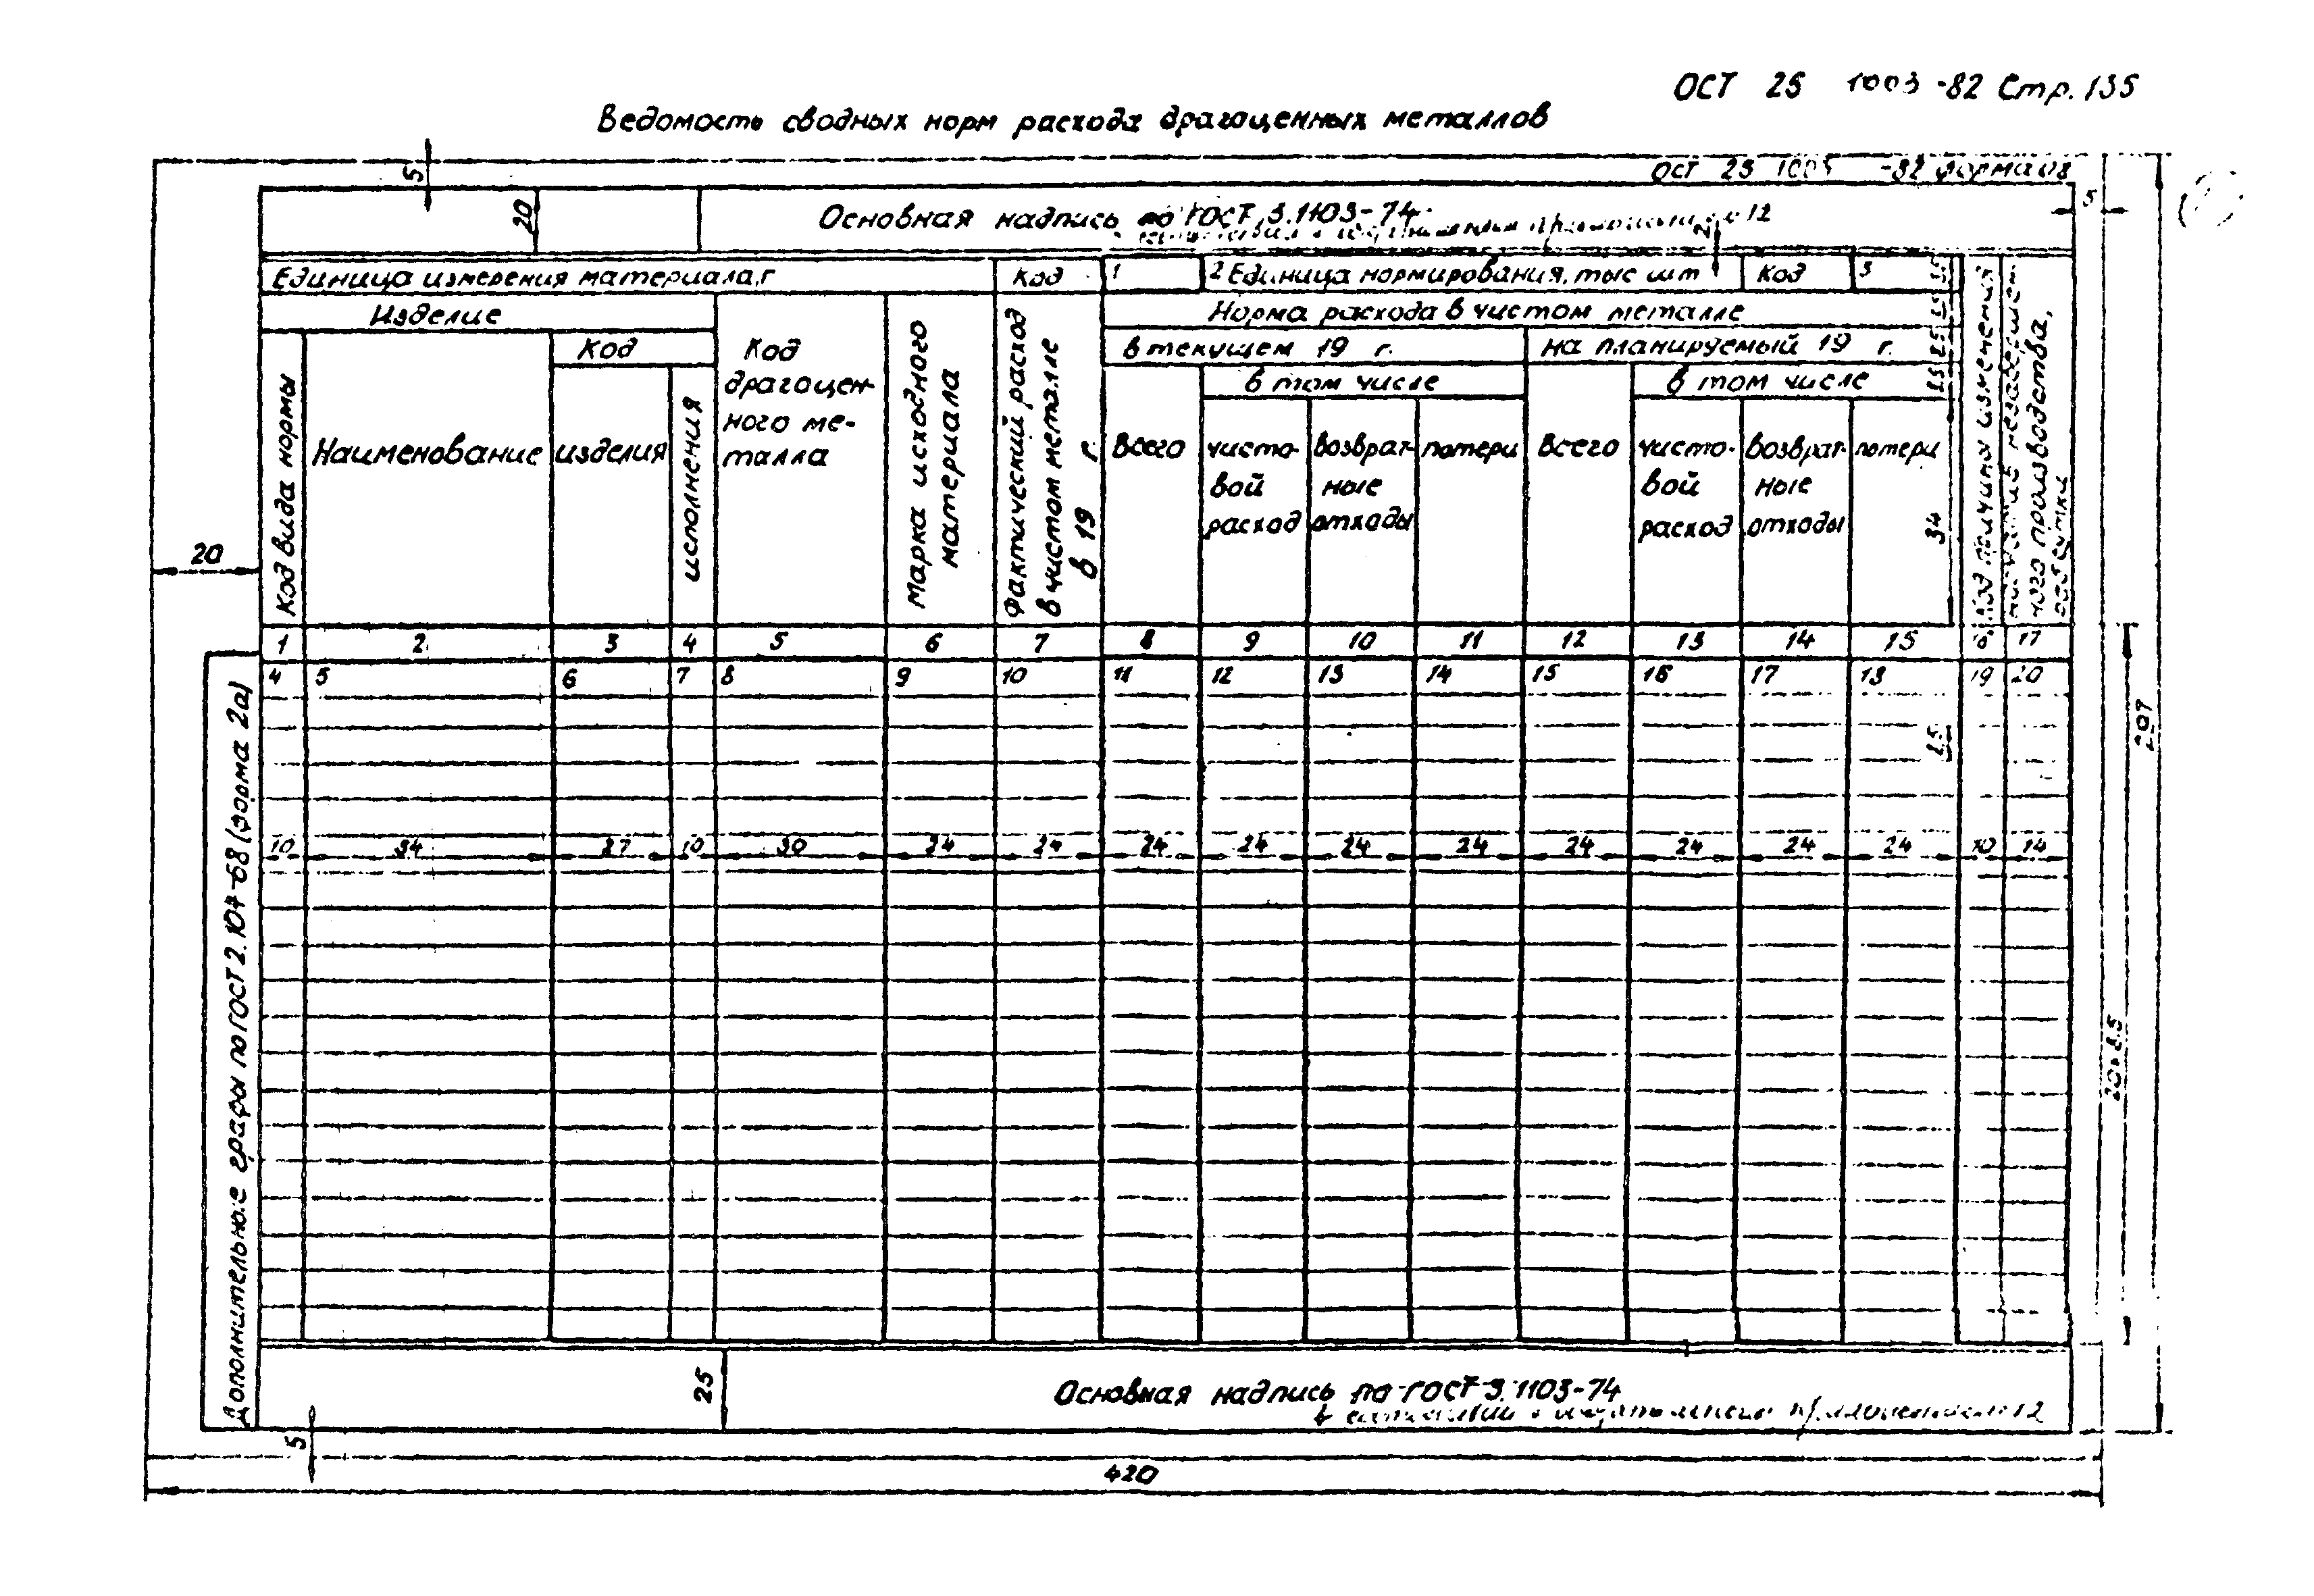 ОСТ 25 1003-82 Стр. 135
Ведомость сводных норм расхода драгоценных металлов
ОСТ 25 1003 -82 форма 08
5
20
Основная надпись по ГОСТ 3.1103-74
12
5
Единица измерения материала, г
Код
1
2 Единица нормирования, тыс шт
Код
3
Изделие
Норма расхода в чистом металле
Код
в текущем 19 г.
на планируемый 19 г.
в том числе
в том числе
Код вида нормы
Наименование
изделия
исполнения
Код
драгоцен-
ного ме-
талла
Марка исходного
материала
Фактический расход
в чистом металле
в 19 г.
Всего
чисто-
вой
расход
возврат-
ные
отходы
потери
Всего
чисто-
вой
расход
возврат-
ные
отходы
потери
34
Код причины изменения
ного производства,
20
1 2 3 4 5 6 7 8 9 10 11 12 13 14 15 16 17
4 5 6 7 8 9 10 11 12 13 14 15 16 17 18 19 20
10 34 27 10 30 24 24 24 24 24 24 24 24 24 24 10 14
Дополнительные графы по ГОСТ 2.104-68 (форма 2а)
297
25
Основная надпись по ГОСТ 3.1103-74
12
5
420